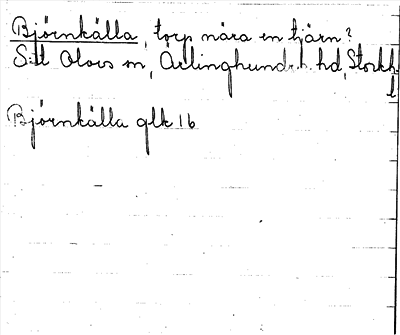 Björnkälla, torp nära en tjärn?
S:t Olovs sn, Ärlinghundr. h. hd, Stockh.
l
Björnkälla glk 16